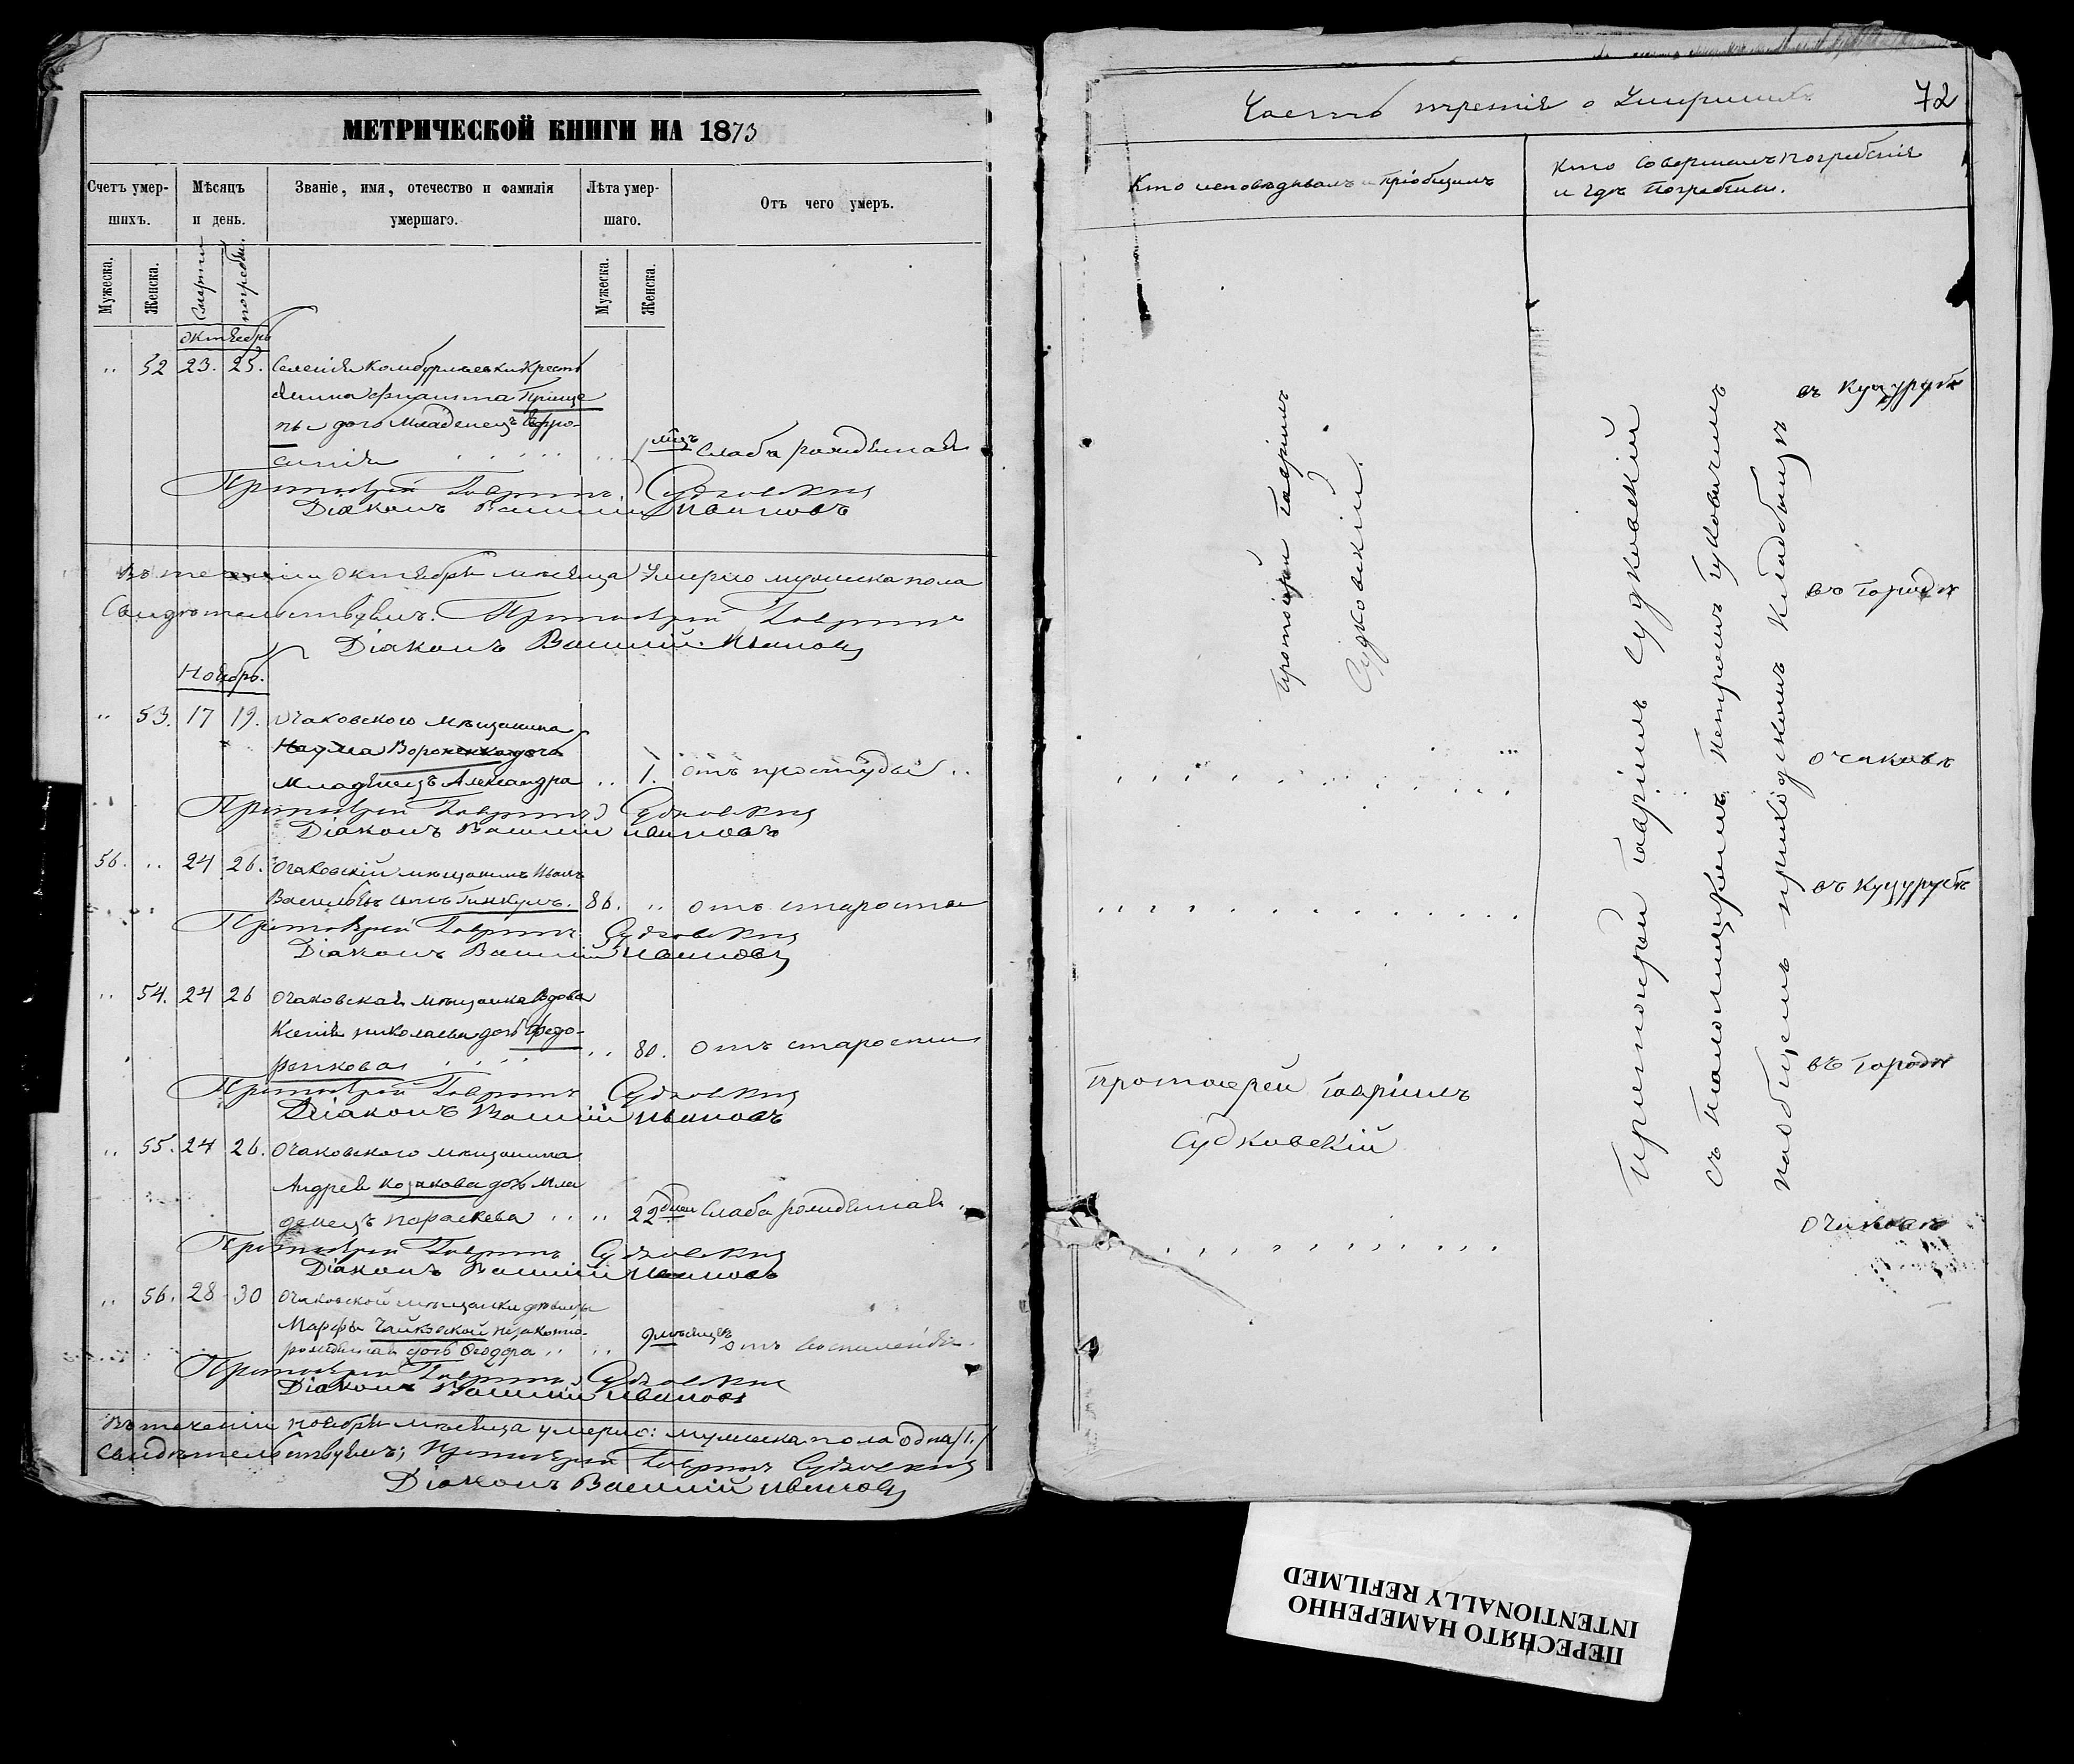 МЕТРИЧЕСКОЙ КНИГИ НА 1873
Счетъ умершихъ.
Мѣсяцъ и день.
Званіе, имя, отечество и фамилія умершаго.
Лѣта умершаго.
Отъ чего умеръ.
Мужеска.
Женска.
Смерти
погребен.
Мужеска.
Женска.
Октябрь
" 52 23. 25. Селенія Камбурлеевки Крестьянина
Прищепы дочь Младенецъ Ефросинія 1 мцъ Слаба рожденная
Протоіерей Гавріилъ Судковскій
Діаконъ Василій Ивановъ
Въ теченіи Октября мѣсяца Умерло мужеска пола
Свидѣтельствуемъ: Протоіерей Гавріилъ
Діаконъ Василій Ивановъ
Ноябрь.
" 53. 17 19. Очаковскаго мѣщанина
Наума Вороненка дочь
Младенецъ Александра " 1. отъ простуды
Протоіерей Гавріилъ Судковскій
Діаконъ Василій Ивановъ
56. " 24 26. Очаковскій мѣщанинъ Иванъ
Васильевъ сынъ Гинкулъ. 86. " отъ старости
Протоіерей Гавріилъ Судковскій
Діаконъ Василій Ивановъ
" 54. 24 26 Очаковская мѣщанка Вдова
Ксенія Николаева дочь Федоренкова " 80. отъ старости
Протоіерей Гавріилъ Судковскій
Діаконъ Василій Ивановъ
" 55. 24 26. Очаковскаго мѣщанина
Андрея Козакова дочь Младенецъ Параскева " 22 дней Слаба рожденная
Протоіерей Гавріилъ Судковскій
Діаконъ Василій Ивановъ
" 56. 28 30 Очаковской мѣщанки дѣвицы
Марфы Чайковской незаконнорожденная дочь Феодора " 9 мѣсяцевъ отъ воспаленія.
Протоіерей Гавріилъ Судковскій
Діаконъ Василій Ивановъ
Въ теченіи Ноября мѣсяца умерло: мужеска пола одна /1./
Свидѣтельствуемъ: Протоіерей Гавріилъ Судковскій
Діаконъ Василій Ивановъ
Часть третія о Умершихъ 72
Кто исповѣдывалъ и пріобщалъ
Кто совершалъ погребеніе
и гдѣ погребены.
Протоіерей Гавріилъ
Судковскій.
Протоіерей Гавріилъ Судковскій
съ Псаломщикомъ Петромъ Гуковичемъ
на общемъ приходскомъ Кладбищѣ
въ Куцурубѣ
въ Городѣ
Очаковѣ
въ Куцурубѣ
въ Городѣ
Очаковѣ
Протоіерей Гавріилъ
Судковскій
ПЕРЕСНЯТО НАМЕРЕННО
INTENTIONALLY REFILMED